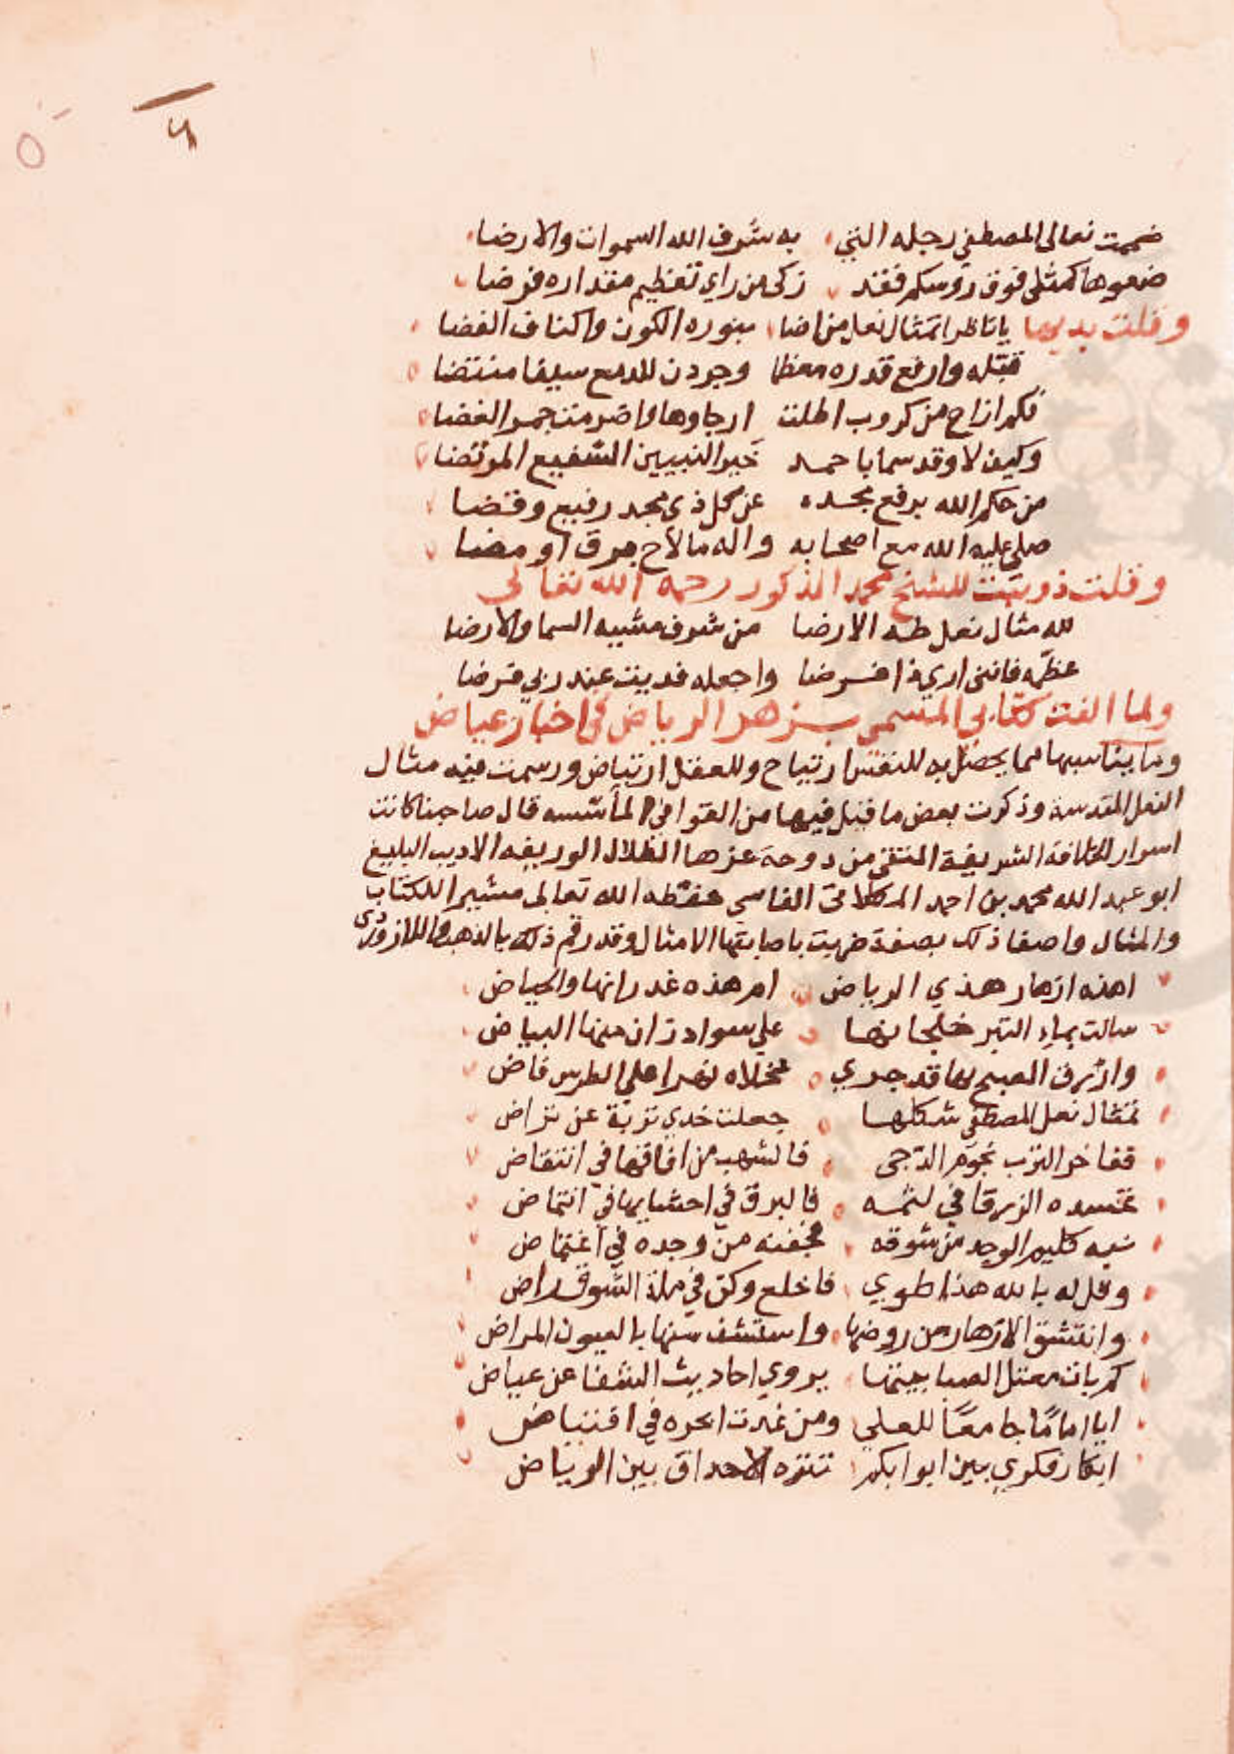 ضممت نعالى المصطفى رجله التي به شرف الله السموات والارضا
ضعوها كمثلى فوق روسكم فقد زكى من راى تعظيم مقداره فرضا
وقلت بديها يا ناظرا تمثال نعل من اضا بنوره الكون واكناف الفضا
قبله وارفع قدره معظما وجردن للدمع سيفا منتضا
فكم ازاح من كروب اظلمت ارجاوها واضرمت جمر الغضا
وكيف لا وقد سما باحمد خير النبيين الشفيع المرتضا
من حكم الله برفع مجده عن كل ذى مجد رفيع وقضا
صلى عليه الله مع اصحابه واله ما لاح برق اومضا
وقلت ذوبيت للشيخ محمد المذكور رحمه الله تعالى
لله مثال نعل طه الارضا من شرف مشيه السما والارضا
عظمه فاننى ارى ذا فرضا واجعله فديت عند ربي قرضا
ولما الفت كتابي المسمى بزهر الرياض في اخبار عياض
وما يناسبها مما يحصل به للنفس ارتياح وللعقل ارتياض ورسمت فيه مثال
النعل المقدسة وذكرت بعض ما قيل فيها من القوافى قال صاحبنا كاتب
اسرار الخلافة الشريفة المنتقى من دوحة عزها الظلال الوريفه الاديب البليغ
ابو عبد الله محمد بن احمد المكلاتى الفاسي حفظه الله تعالى مشيرا للكتاب
والمثال واصفا ذلك بصفة ضربت باصابتها الامثال وقد رقم ذلك بالذهب واللازوردى
اهذه ازهار هذي الرياض ام هذه غدرانها والحياض
سالت بماء التبر خلجانها علي سواد زان منها البياض
وازرق الصبح بها قد جري نهرا على الطرس فاض
تمثال نعل المصطفى شكلها جعلت خدي تربة عن تراض
ففاخر الترب نجوم الدجى فالشهب من افاقها في انتقاض
تحسده الزرقا في لثمه فالبرق في احشايها في انتماض
نبه كليم الوجد من شوقه فجفنه من وجده في اغتماض
وقل له بالله هذا طوي فاخلع وكن في ملة الشوق راض
وانتشق الازهار من روضها واستشف منها بالعيون المراض
كم بات معتل الصبا بينها يروي احاديث الشفا عن عياض
ايا اماما جامعا للعلى ومن غدت ابحره في افتياض
ابكار فكري بين ابوابكم تنزه الاحداق بين الرياض